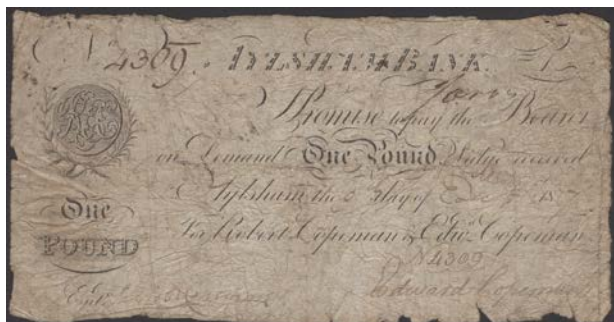 4309. AYLSHAM BANK £1
I Promise to pay the Bearer
on Demand One Pound Value received
Aylsham the day of
One
For Robert Copeman & Edwd. Copeman
POUND
4309
Edward Copeman